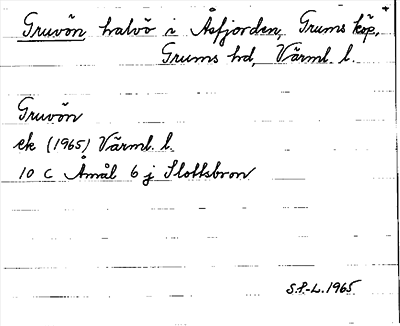 Gruvön halvö i Åsfjorden, Grums köp,
Grums hd, Värml. l.
Gruvön
ek (1965) Värml. l.
10 C Åmål 6 j Slottsbron
S.P-L. 1965